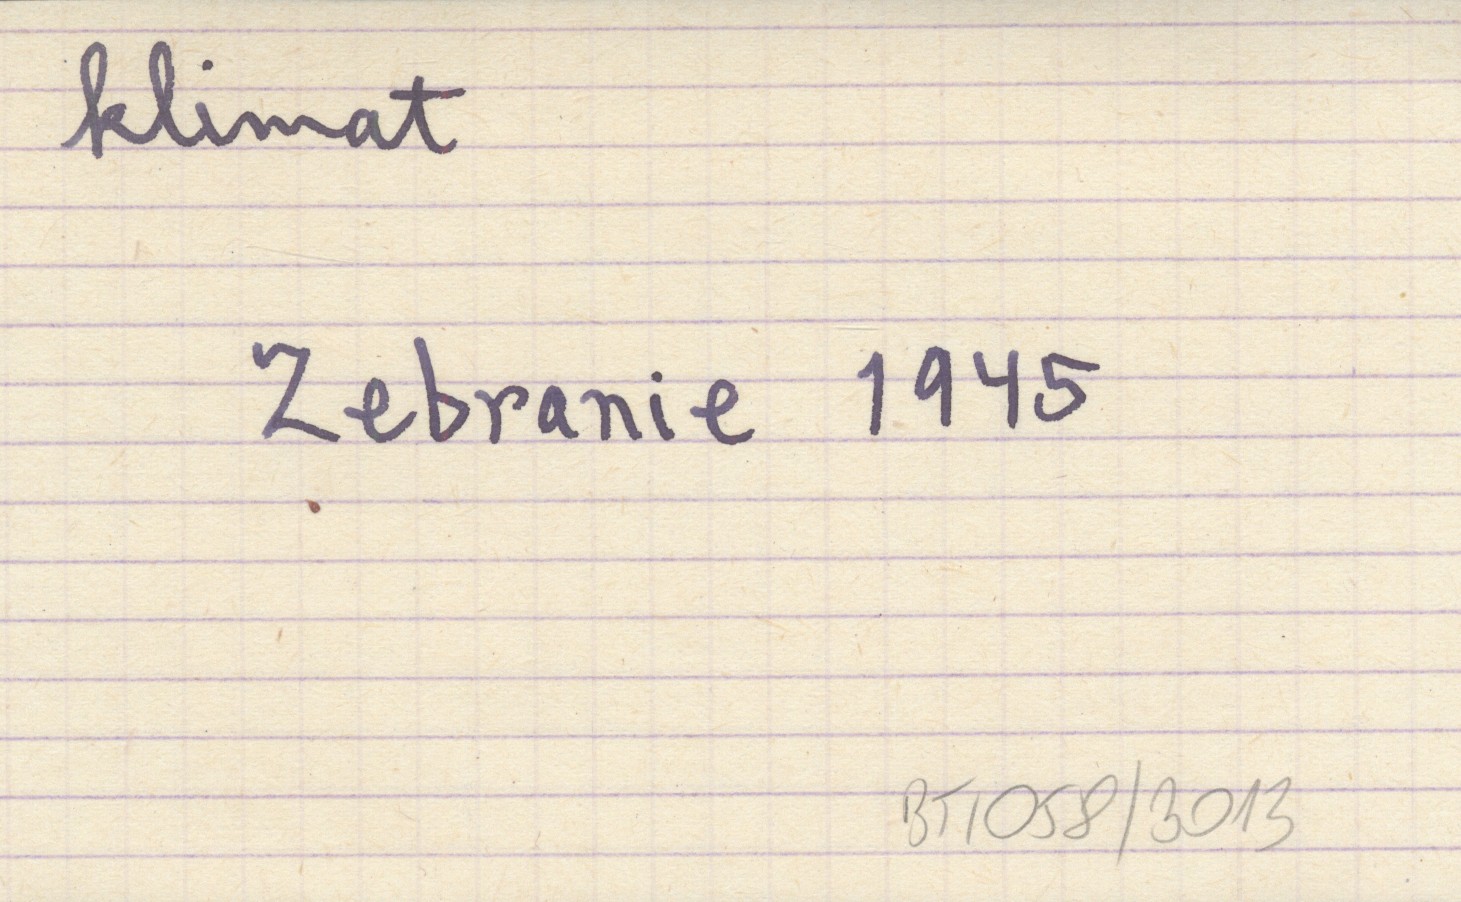 klimat
Zebranie 1945
BT1058/3013